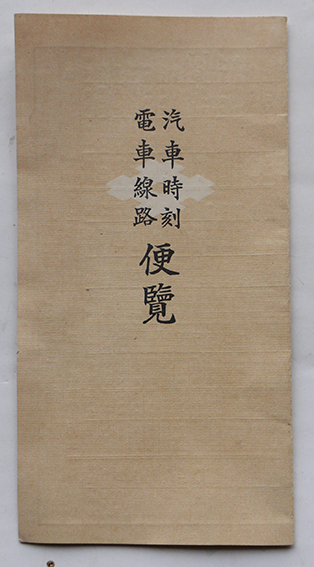 汽車時刻
電車線路
便覽